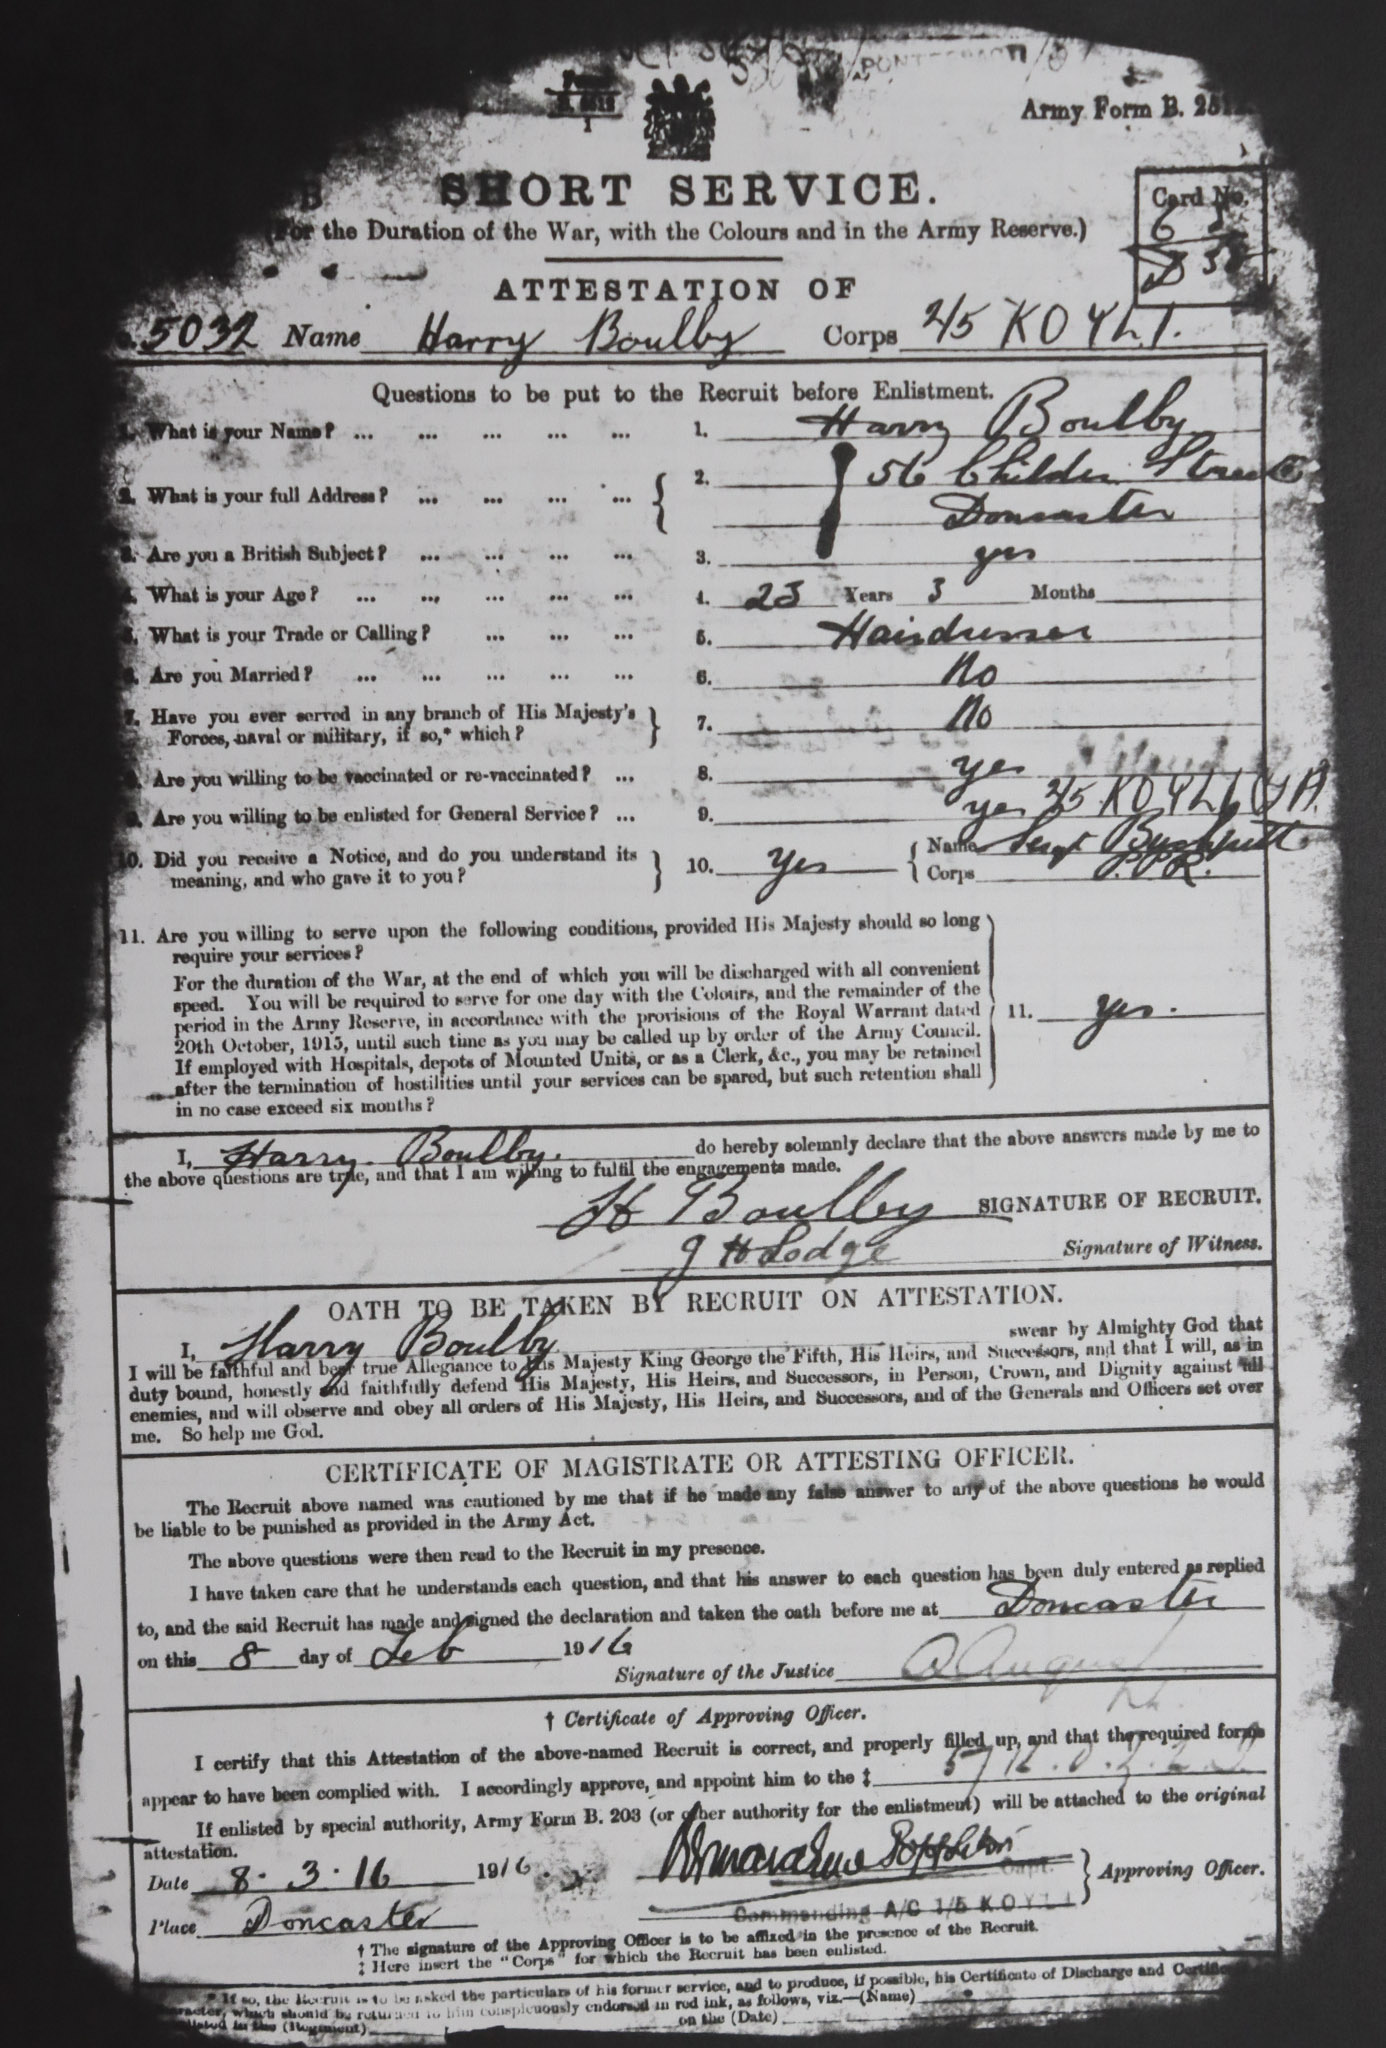 PONTEFRACT
Army Form B. 251
SHORT SERVICE.
(For the Duration of the War, with the Colours and in the Army Reserve.)
Card No.
ATTESTATION OF
5032 Name Harry Boulby Corps 2/5 KOYLI.
Questions to be put to the Recruit before Enlistment.
1. What is your Name? ... ... ... ... ... 1. Harry Boulby
2. What is your full Address? ... ... ... ... { 2. 56 Childers Street
Doncaster
3. Are you a British Subject? ... ... ... ... 3. yes
4. What is your Age? ... ... ... ... ... 4. 23 Years 3 Months
5. What is your Trade or Calling? ... ... ... 5. Hairdresser
6. Are you Married? ... ... ... ... ... 6. No
7. Have you ever served in any branch of His Majesty's
Forces, naval or military, if so,* which? } 7. No
8. Are you willing to be vaccinated or re-vaccinated? ... 8. yes
9. Are you willing to be enlisted for General Service? ... 9. yes 2/5 KOYLI
10. Did you receive a Notice, and do you understand its
meaning, and who gave it to you? } 10. Yes { Name Sergt
Corps
11. Are you willing to serve upon the following conditions, provided His Majesty should so long
require your services?
For the duration of the War, at the end of which you will be discharged with all convenient
speed. You will be required to serve for one day with the Colours, and the remainder of the
period in the Army Reserve, in accordance with the provisions of the Royal Warrant dated
20th October, 1915, until such time as you may be called up by order of the Army Council.
If employed with Hospitals, depots of Mounted Units, or as a Clerk, &c., you may be retained
after the termination of hostilities until your services can be spared, but such retention shall
in no case exceed six months?
11. yes.
I, Harry Boulby. do hereby solemnly declare that the above answers made by me to
the above questions are true, and that I am willing to fulfil the engagements made.
H Boulby SIGNATURE OF RECRUIT.
J H Lodge Signature of Witness.
OATH TO BE TAKEN BY RECRUIT ON ATTESTATION.
I, Harry Boulby swear by Almighty God that
I will be faithful and bear true Allegiance to His Majesty King George the Fifth, His Heirs, and Successors, and that I will, as in
duty bound, honestly and faithfully defend His Majesty, His Heirs, and Successors, in Person, Crown, and Dignity against all
enemies, and will observe and obey all orders of His Majesty, His Heirs, and Successors, and of the Generals and Officers set over
me. So help me God.
CERTIFICATE OF MAGISTRATE OR ATTESTING OFFICER.
The Recruit above named was cautioned by me that if he made any false answer to any of the above questions he would
be liable to be punished as provided in the Army Act.
The above questions were then read to the Recruit in my presence.
I have taken care that he understands each question, and that his answer to each question has been duly entered as replied
to, and the said Recruit has made and signed the declaration and taken the oath before me at Doncaster
on this 8 day of Feb 1916
Signature of the Justice
† Certificate of Approving Officer.
I certify that this Attestation of the above-named Recruit is correct, and properly filled up, and that the required forms
appear to have been complied with. I accordingly approve, and appoint him to the ‡
If enlisted by special authority, Army Form B. 203 (or other authority for the enlistment) will be attached to the original
attestation.
Date 8.3.16 1916.
Capt. } Approving Officer.
Commanding A/C 1/5 KOYLI
Place Doncaster
† The signature of the Approving Officer is to be affixed in the presence of the Recruit.
‡ Here insert the "Corps" for which the Recruit has been enlisted.
* If so, the Recruit is to be asked the particulars of his former service, and to produce, if possible, his Certificate of Discharge and
which should be returned to him conspicuously endorsed in red ink, as follows, viz.—(Name)
in the (Regiment) on the (Date)